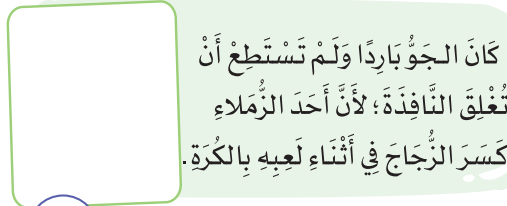 كَانَ الجَوُّ بَارِدًا وَلَمْ تَسْتَطِعْ أَنْ
تُغْلِقَ النَّافِذَةَ؛ لأَنَّ أَحَدَ الزُّمَلاءِ
كَسَرَ الزُّجَاجَ فِي أَثْنَاءِ لَعِبِهِ بِالكُرَةِ.